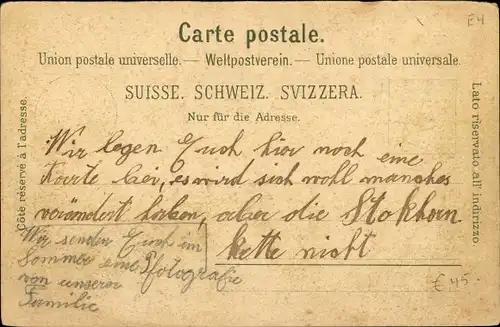 E4
Carte postale.
Union postale universelle. — Weltpostverein. — Unione postale universale.
SUISSE. SCHWEIZ. SVIZZERA.
Nur für die Adresse.
Côté réservé à l'adresse.
Lato riservato all' indirizzo.
Wir legen Euch hier noch eine
Karte bei, es wird sich wohl manches
verändert haben, aber die Stokhorn
kette nicht
Wir senden Euch im
Sommer eine Pfotografie
von unserer
Familie
€ 45.-